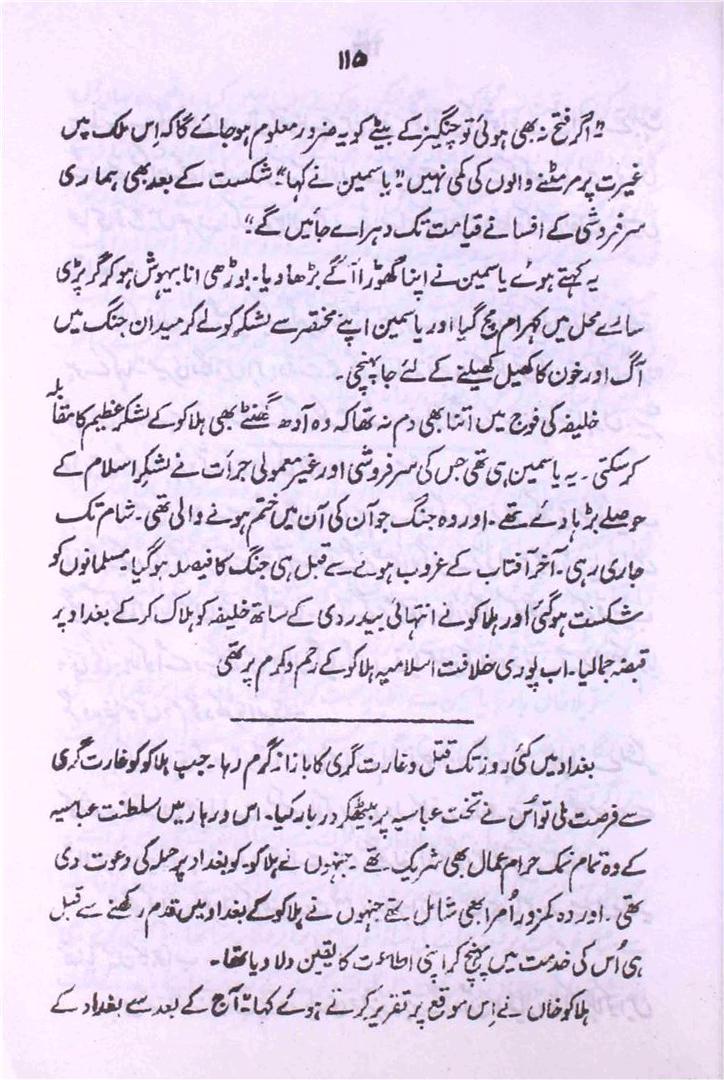 ۱۱۵
"اگر فتح نہ بھی ہوئی تو چنگیز کے بیٹے کو یہ ضرور معلوم ہو جائے گا کہ اِس ملک میں
غیرت پر مر مٹنے والوں کی کمی نہیں" یاسمین نے کہا "شکست کے بعد بھی ہماری
سرفروشی کے افسانے قیامت تک دہراے جائیں گے"
یہ کہتے ہوئے یاسمین نے اپنا گھوڑا آگے بڑھا دیا۔ بوڑھی انا بیہوش ہو کر گر پڑی
سارے محل میں کہرام مچ گیا اور یاسمین اپنے مختصر سے لشکر کو لے کر میدان جنگ میں
آگ اور خون کا کھیل کھیلنے کے لئے جا پہنچی۔
خلیفہ کی فوج میں اتنا بھی دم نہ تھا کہ وہ آدھ گھنٹے بھی ہلاکو کے لشکر عظیم کا مقابلہ
کر سکتی۔ یہ یاسمین ہی تھی جس کی سرفروشی اور غیر معمولی جرأت نے لشکرِ اسلام کے
حوصلے بڑہا دئے تھے۔ اور وہ جنگ جو آن کی آن میں ختم ہونے والی تھی۔ شام تک
جاری رہی۔ آخر آفتاب کے غروب ہونے سے قبل ہی جنگ کا فیصلہ ہو گیا۔ مسلمانوں کو
شکست ہو گئی اور ہلاکو نے انتہائی بیدردی کے ساتھ خلیفہ کو ہلاک کر کے بغداد پر
قبضہ جما لیا۔ اب پوری خلافت اسلامیہ ہلاکو کے رحم و کرم پر تھی
بغداد میں کئی روز تک قتل و غارت گری کا بازار گرم رہا۔ جب ہلاکو کو غارت گری
سے فرصت ملی تو اُس نے تخت عباسیہ پر بیٹھکر دربار کیا۔ اس دربار میں سلطنت عباسیہ
کے وہ تمام نمک حرام عمال بھی شریک تھے۔ جنہوں نے ہلاکو۔ کو بغداد پر حملہ کی دعوت دی
تھی۔ اور وہ کمزور اُمرا بھی شامل تھے جنہوں نے ہلاکو کے بغداد میں قدم رکھنے سے قبل
ہی اُس کی خدمت میں پہنچ کر اپنی اطاعت کا یقین دلا دیا تھا۔
ہلاکو خاں نے اِس موقع پر تقریر کرتے ہوئے کہا "آج کے بعد سے بغداد کے